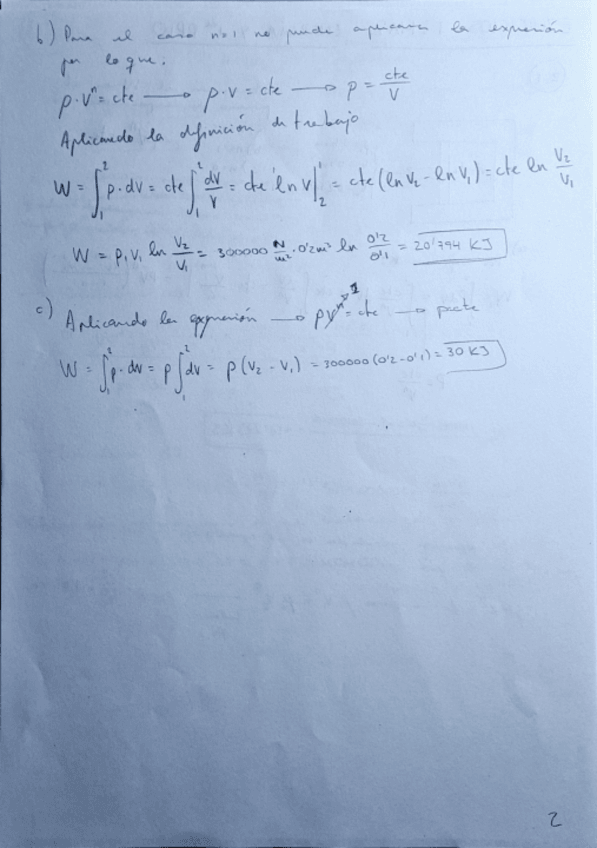 b) Para el caso n=1 no puede aplicarse la expresión
por lo que.
p·Vⁿ = cte → p·V = cte → p = cte/V
Aplicando la definición de trabajo
W = ∫₁² p·dV = cte ∫₁² dV/V = cte ln V|₂¹ = cte (ln V₂ - ln V₁) = cte ln V₂/V₁
W = P₁V₁ ln V₂/V₁ = 300000 N/m² · 0'2m³ ln 0'2/0'1 = 20'794 KJ
c) Aplicando la expresión → pVⁿ = cte → p=cte
W = ∫₁² p·dv = p ∫₁² dv = p (V₂ - V₁) = 300000 (0'2 - 0'1) = 30 KJ
2